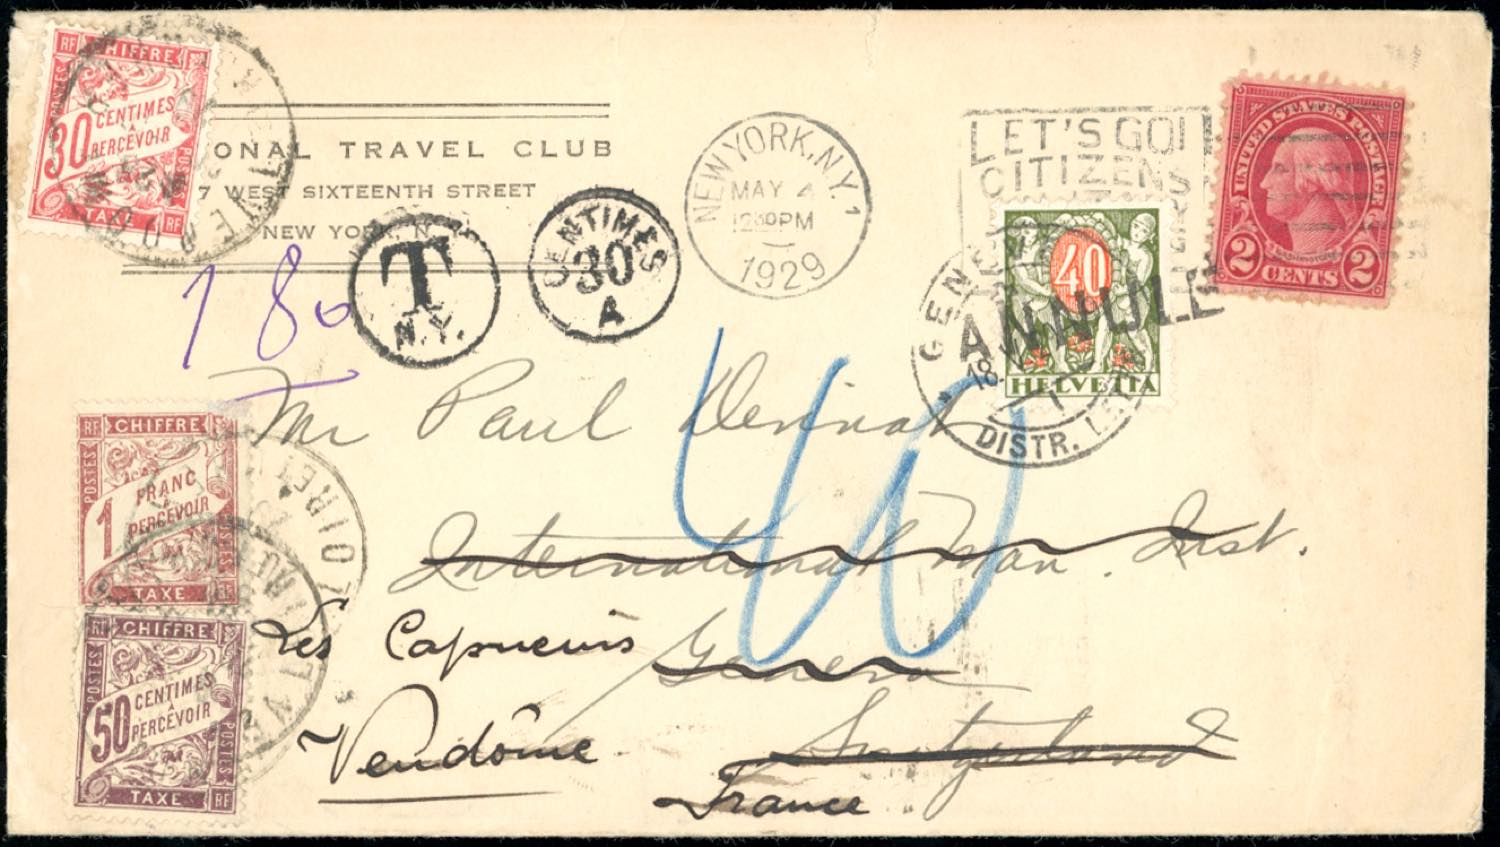 RF CHIFFRE
POSTES
30 CENTIMES
A
PERCEVOIR
POSTES
TAXE RF
ONAL TRAVEL CLUB
7 WEST SIXTEENTH STREET
NEW YORK, N.
T
N.Y.
CENTIMES
30
A
NEW YORK, N.Y. 1
MAY 4
12 30 PM
1929
LET'S GO!
CITIZENS
UNITED STATES POSTAGE
WASHINGTON
2 CENTS 2
40
HELVETIA
GENÈVE
ANNULÉ
18.
DISTR. LE
1 80
40
Mr Paul
International Man. Inst.
Geneva
Switzerland
Les Capucins
Vendôme
France
RF CHIFFRE
POSTES
1 FRANC
A
PERCEVOIR
POSTES
TAXE
RF CHIFFRE
POSTES
50 CENTIMES
A
PERCEVOIR
POSTES
TAXE RF